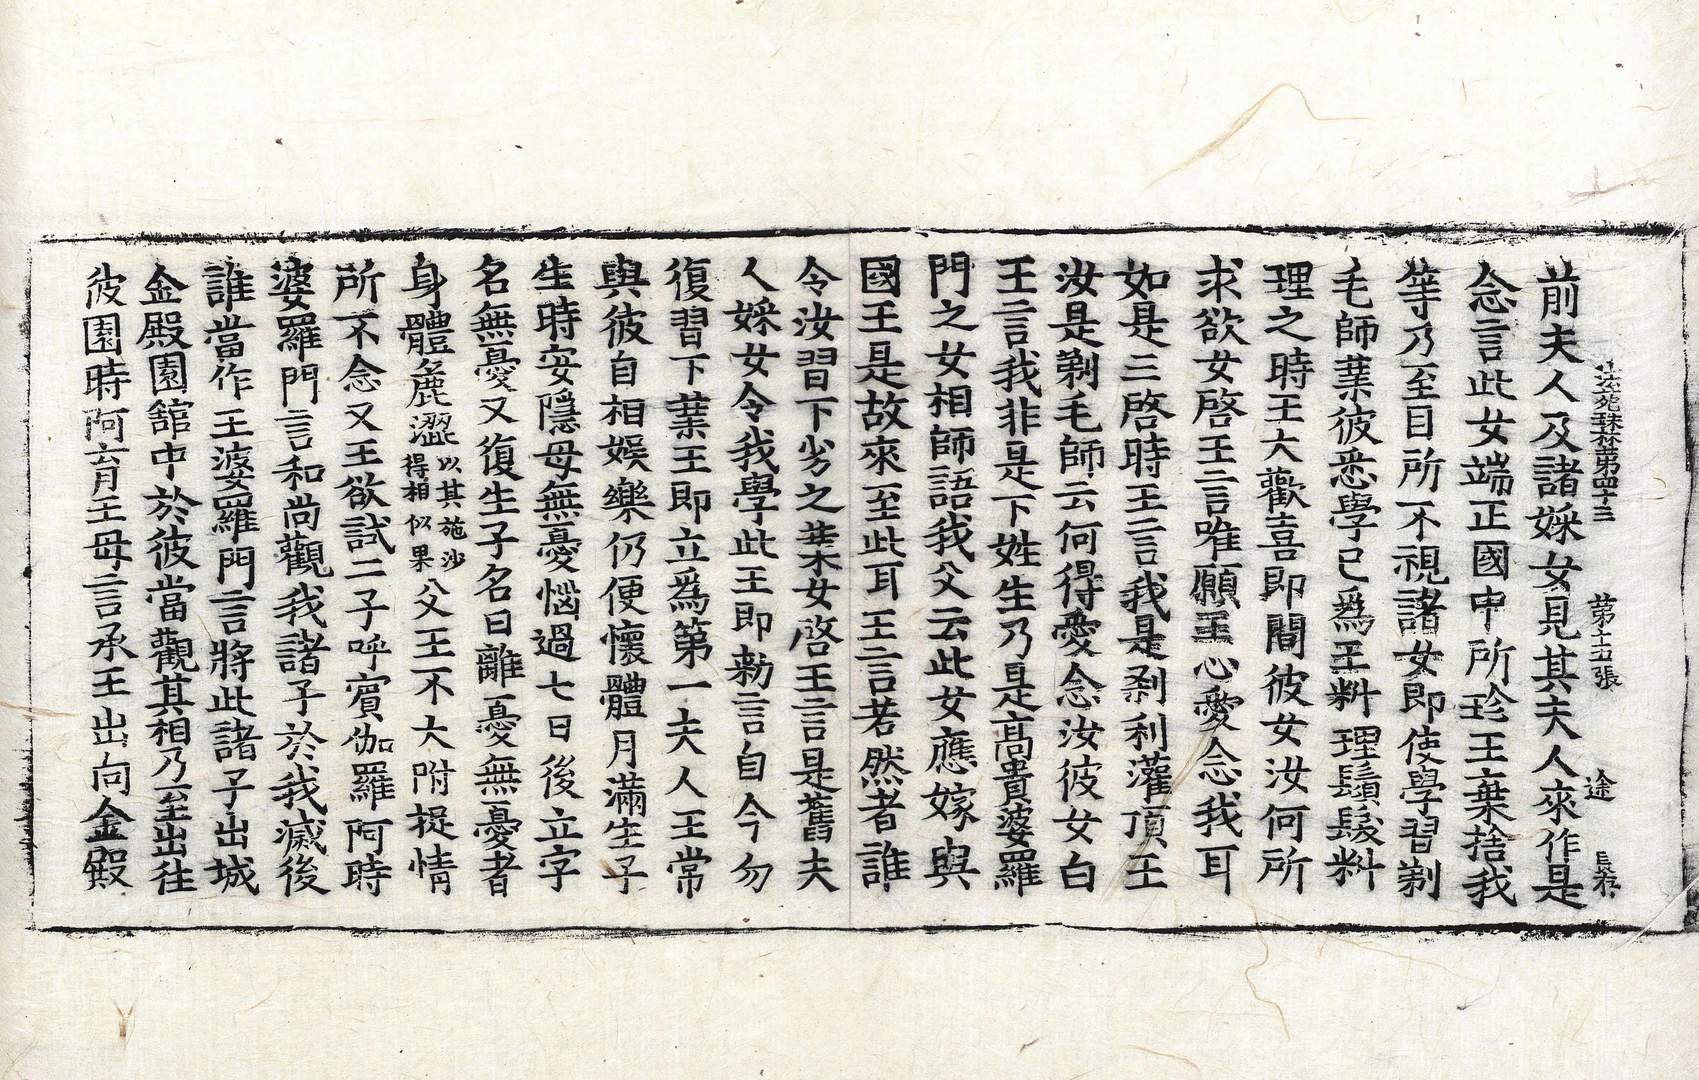 法苑珠林第四十三 第十五張 途 長存
前夫人及諸婇女見其夫人來作是
念言此女端正國中所珎王棄捨我
等乃至目所不視諸女即使學習剃
毛師業彼悉學已爲王料理鬚髮料
理之時王大歡喜即問彼女汝何所
求欲女啓王言唯願王心愛念我耳
如是三啓時王言我是刹利灌頂王
汝是剃毛師云何得愛念汝彼女白
王言我非是下姓生乃是高貴婆羅
門之女相師語我父云此女應嫁與
國王是故來至此耳王言若然者誰
令汝習下劣之業女啓王言是舊夫
人婇女令我學此王即勑言自今勿
復習下業王即立爲第一夫人王常
與彼自相娛樂仍便懷體月滿生子
生時安隱母無憂惱過七日後立字
名無憂又復生子名曰離憂無憂者
身體麁澀以其施沙得相似果父王不大附捉情
所不念又王欲試二子呼賓伽羅阿時
婆羅門言和尚觀我諸子於我滅後
誰當作王婆羅門言將此諸子出城
金殿園館中於彼當觀其相乃至出往
彼園時阿育王母言承王出向金殿